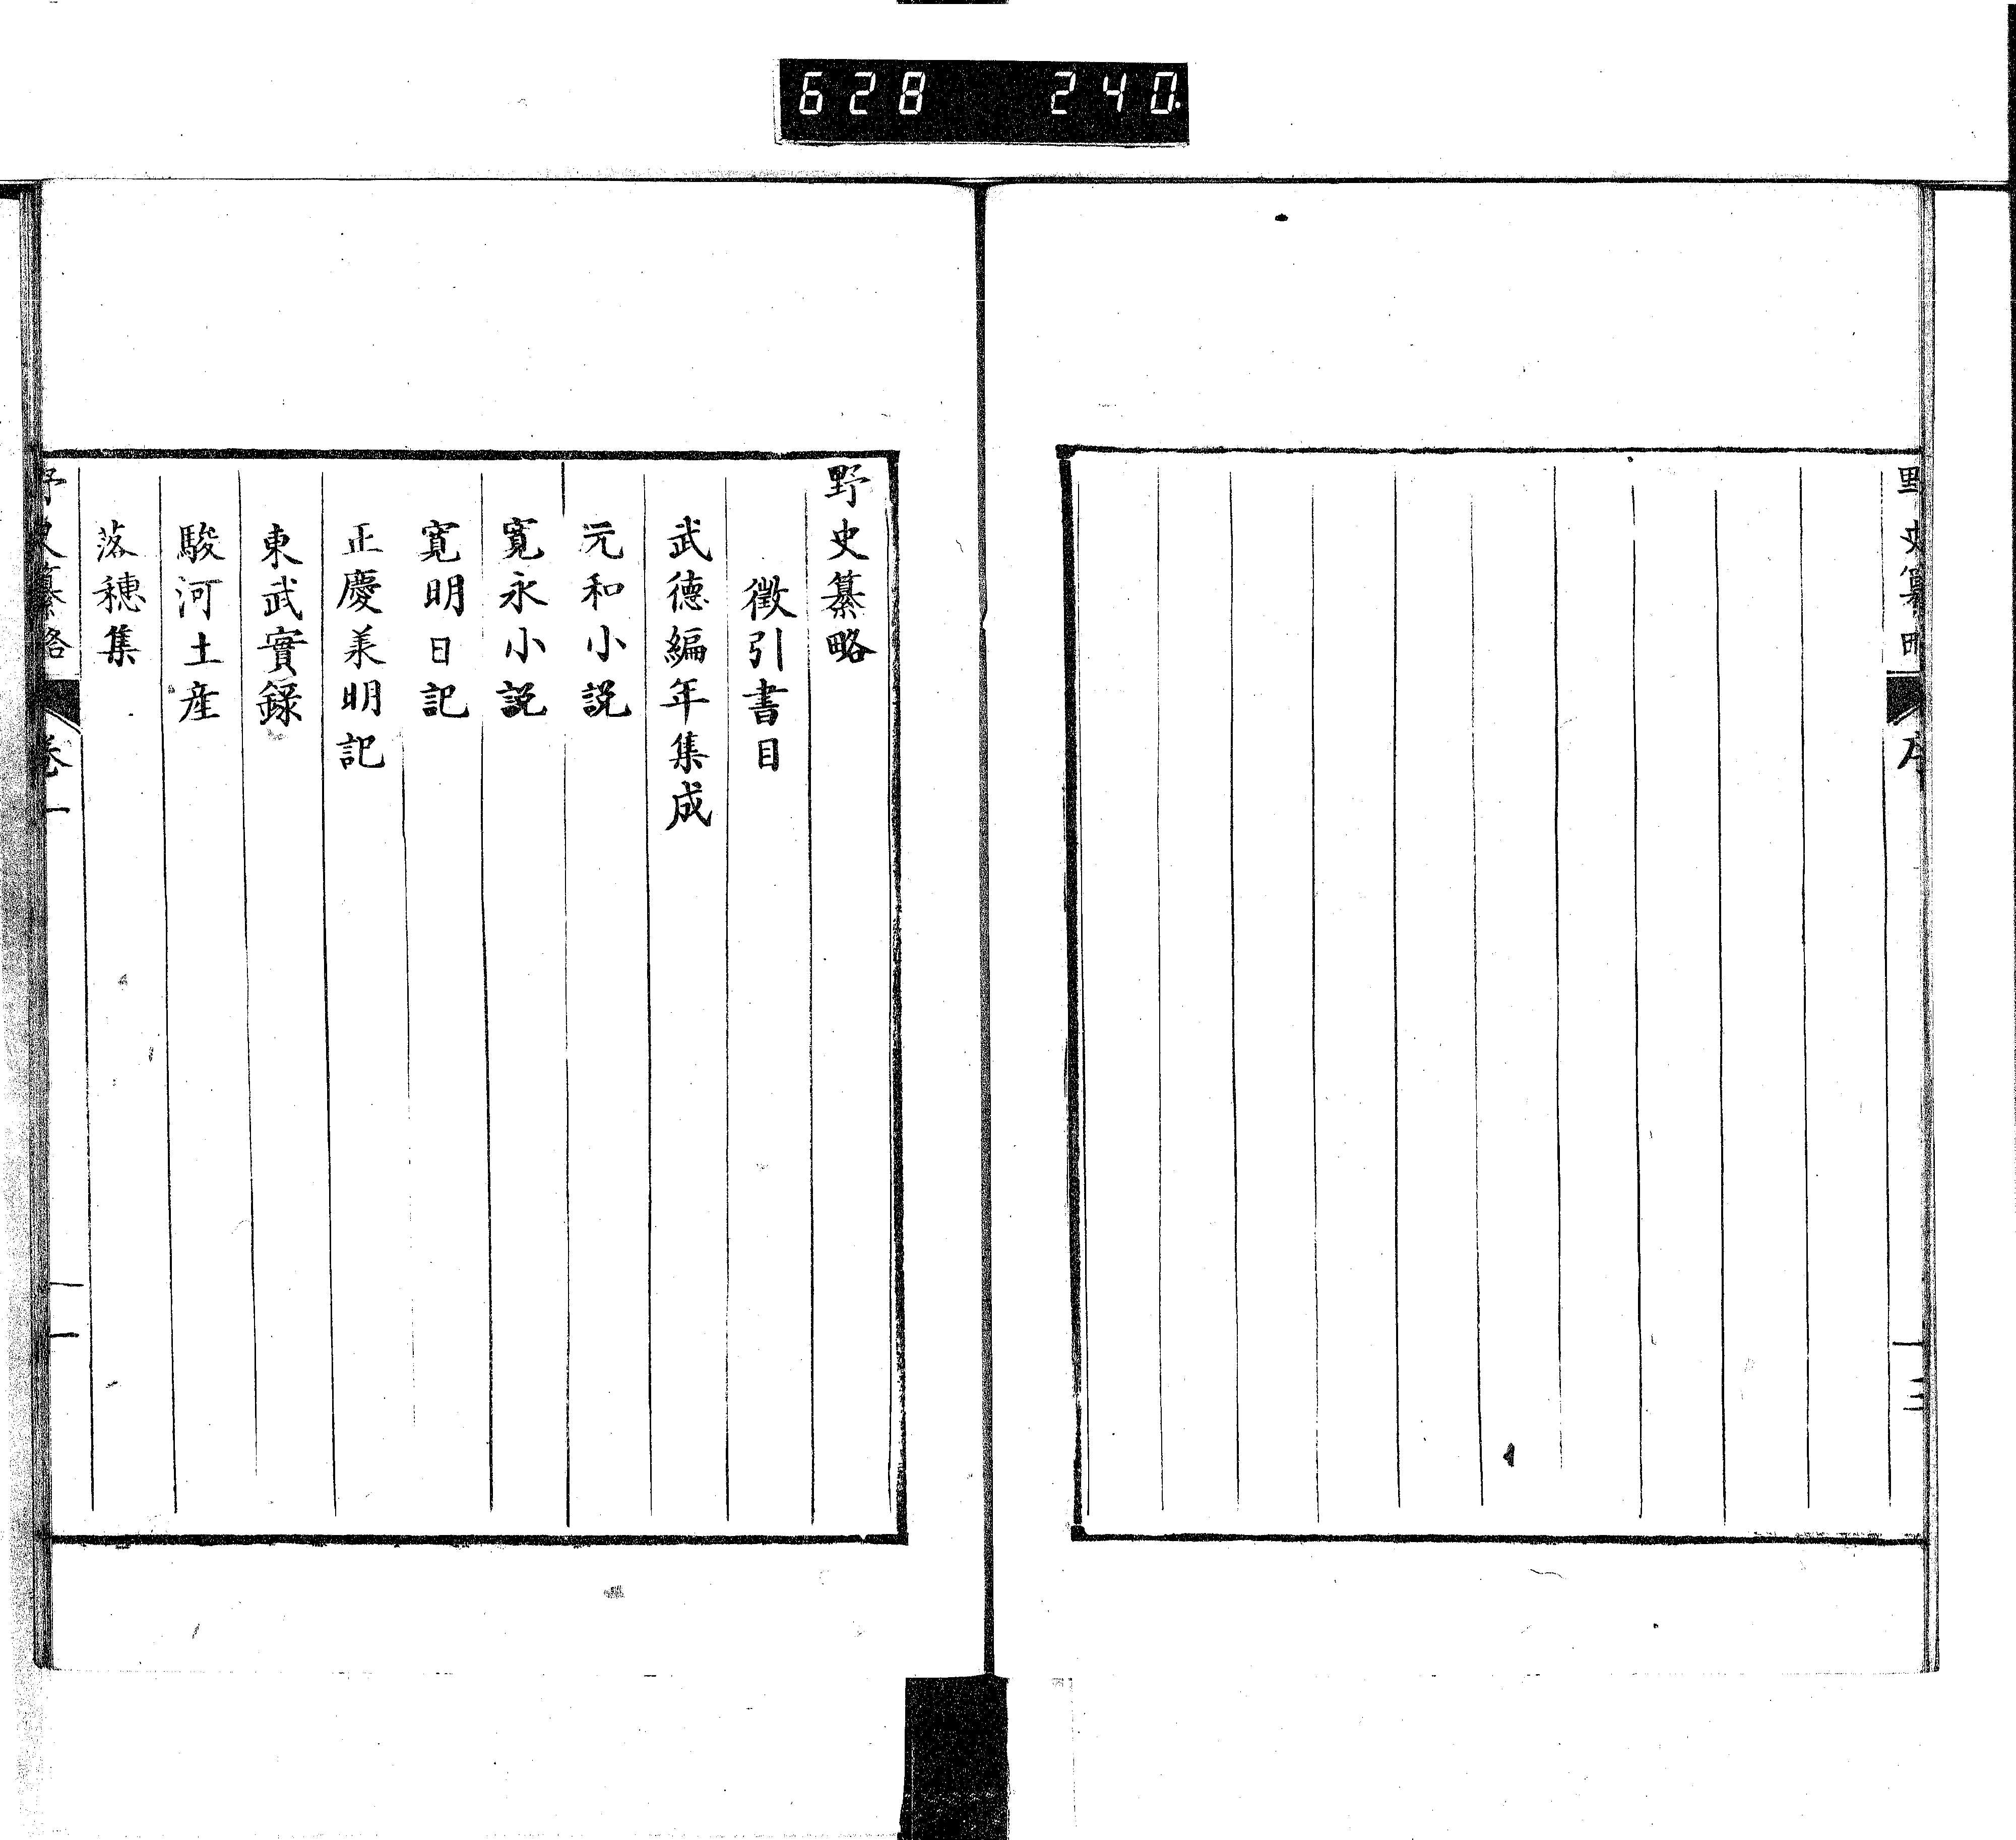 628 240
野史纂略
序
三
野史纂略
徵引書目
武德編年集成
元和小説
寛永小説
寛明日記
正慶義明記
東武實録
駿河土産
落穗集
野史纂略
卷一
一